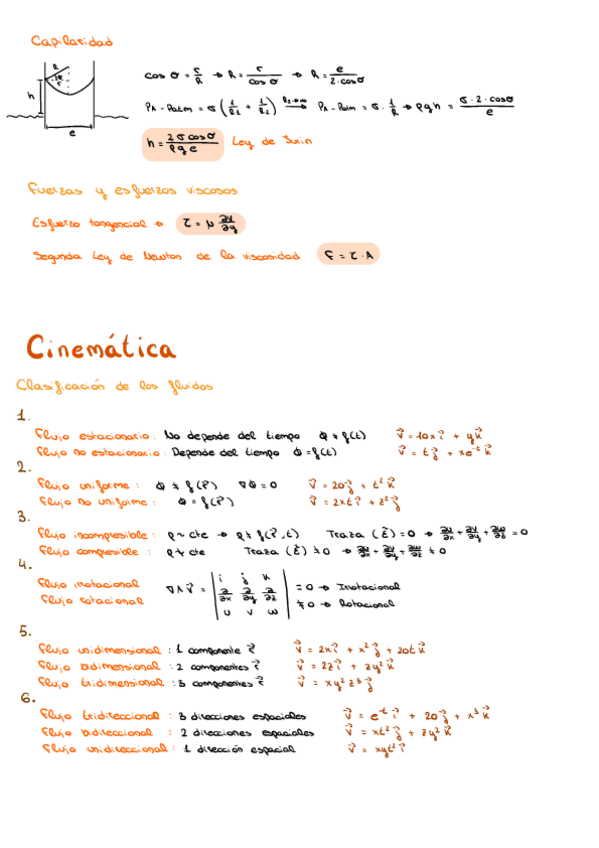 Capilaridad
R
r
h
e
cos σ = r/R → R = r/cos σ → R = e/(2·cosσ)
PA - Patm = σ (1/R1 + 1/R2) → PA - Patm = σ · 1/R → ρgh = σ·2·cosσ/e
h = 2σcosσ/ρge Ley de Jurin
Fuerzas y esfuerzos viscosos
Esfuerzo tangencial → τ = μ ∂v/∂y
Segunda Ley de Newton de la viscosidad F = τ·A
Cinemática
Clasificación de los fluidos
1.
Flujo estacionario: No depende del tiempo Φ ≠ f(t) v⃗ = 10x i⃗ + y k⃗
Flujo no estacionario: Depende del tiempo Φ = f(t) v⃗ = t j⃗ + xe^-t k⃗
2.
Flujo uniforme: Φ ≠ f(r⃗) ∇Φ = 0 v⃗ = 20 j⃗ + t² k⃗
Flujo no uniforme: Φ = f(r⃗) v⃗ = 2xt i⃗ + z² j⃗
3.
Flujo incompresible: ρ ~ cte → ρ ≠ f(r⃗,t) Traza (Ė) = 0 → ∂u/∂x + ∂v/∂y + ∂w/∂z = 0
Flujo compresible: ρ ≠ cte Traza (Ė) ≠ 0 → ∂u/∂x + ∂v/∂y + ∂w/∂z ≠ 0
4.
Flujo irrotacional ∇∧v⃗ = | i j k | = 0 → Irrotacional
Flujo rotacional | ∂/∂x ∂/∂y ∂/∂z | ≠ 0 → Rotacional
| u v w |
5.
Flujo unidimensional: 1 componente r⃗ v⃗ = 2x i⃗ + x² j⃗ + 20t k⃗
Flujo bidimensional: 2 componentes r⃗ v⃗ = 2z i⃗ + zy² k⃗
Flujo tridimensional: 3 componentes r⃗ v⃗ = xy²z³ j⃗
6.
Flujo tridireccional: 3 direcciones espaciales v⃗ = e^-t i⃗ + 20 j⃗ + x³ k⃗
Flujo bidireccional: 2 direcciones espaciales v⃗ = xt² j⃗ + zy² k⃗
Flujo unidireccional: 1 dirección espacial v⃗ = xyt² i⃗